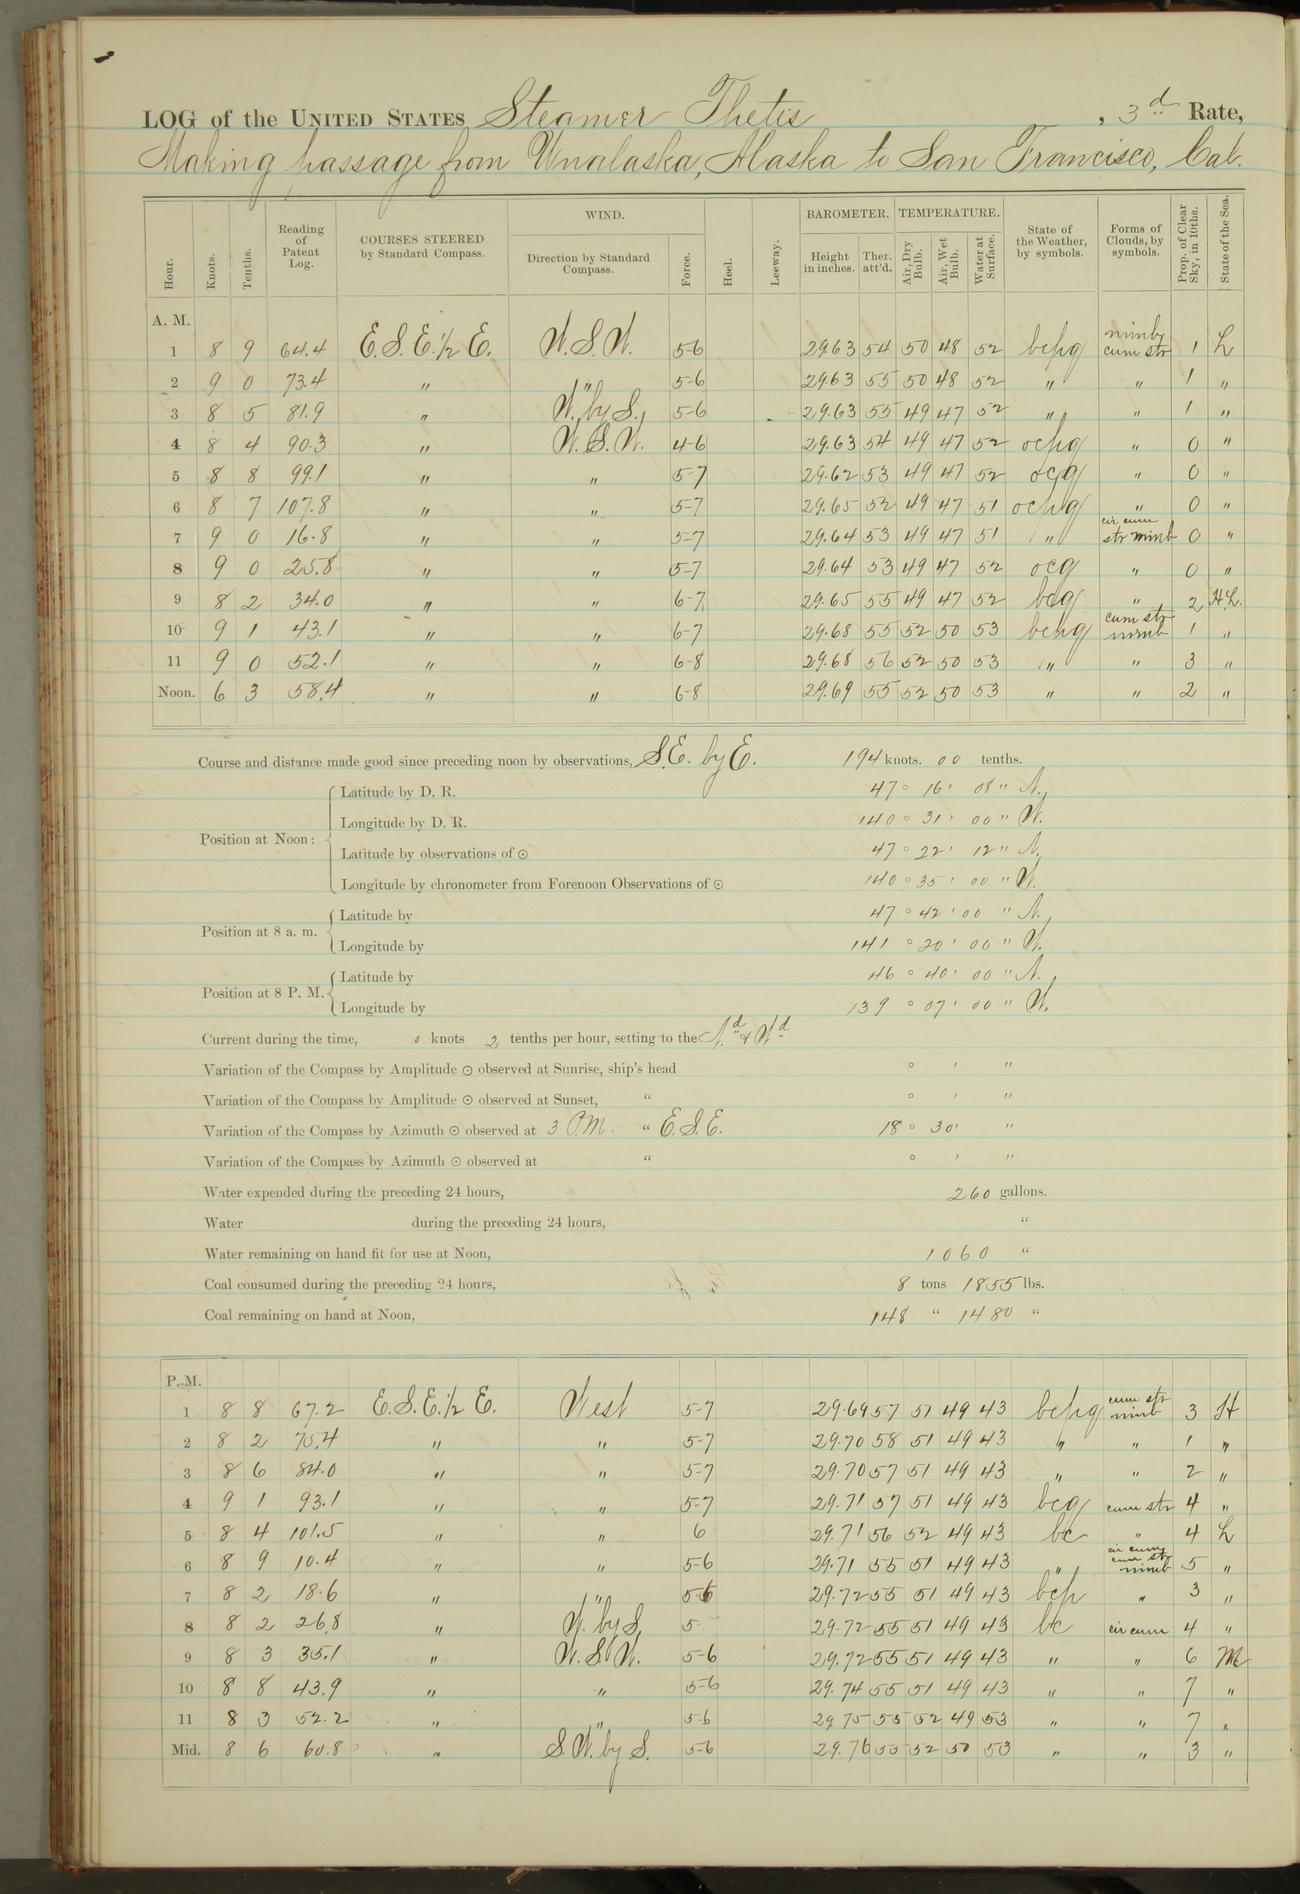 LOG of the UNITED STATES Steamer Thetis, 3d Rate,
Making passage from Unalaska, Alaska to San Francisco, Cal.
Hour. Knots. Tenths. Reading of Patent Log. COURSES STEERED by Standard Compass. WIND. Direction by Standard Compass. Force. Heel. Leeway. BAROMETER. Height in inches. Ther. att'd. TEMPERATURE. Air, Dry Bulb. Air, Wet Bulb. Water at Surface. State of the Weather, by symbols. Forms of Clouds, by symbols. Prop. of Clear Sky, in 10ths. State of the Sea.
A. M.
1 8 9 64.4 E.S.E. 1/2 E. W.S.W. 5-6 29.63 54 50 48 52 bcpq nimb cum str 1 L
2 9 0 73.4 " " 5-6 29.63 55 50 48 52 " " 1 "
3 8 5 81.9 " W. by S. 5-6 29.63 55 49 47 52 " " 1 "
4 8 4 90.3 " W.S.W. 4-6 29.63 54 49 47 52 ocpq " 0 "
5 8 8 99.1 " " 5-7 29.62 53 49 47 52 ocq " 0 "
6 8 7 107.8 " " 5-7 29.65 52 49 47 51 ocpq " 0 "
7 9 0 16.8 " " 5-7 29.64 53 49 47 51 " cir cum str nimb 0 "
8 9 0 25.8 " " 5-7 29.64 53 49 47 52 ocq " 0 "
9 8 2 34.0 " " 6-7 29.65 55 49 47 52 bcq " 2 H.L.
10 9 1 43.1 " " 6-7 29.68 55 52 50 53 bcpq cum str nimb 1 "
11 9 0 52.1 " " 6-8 29.68 56 52 50 53 " " 3 "
Noon. 6 3 58.4 " " 6-8 29.69 55 52 50 53 " " 2 "
Course and distance made good since preceding noon by observations, S.E. by E. 194 knots. 00 tenths.
Position at Noon:
Latitude by D. R. 47 ° 16 ' 08 " N.
Longitude by D. R. 140 ° 31 ' 00 " W.
Latitude by observations of ☉ 47 ° 22 ' 12 " N.
Longitude by chronometer from Forenoon Observations of ☉ 140 ° 35 ' 00 " W.
Position at 8 a. m.
Latitude by 47 ° 42 ' 00 " N.
Longitude by 141 ° 20 ' 00 " W.
Position at 8 P. M.
Latitude by 46 ° 40 ' 00 " N.
Longitude by 139 ° 07 ' 00 " W.
Current during the time, 0 knots 2 tenths per hour, setting to the N.d & W.d
Variation of the Compass by Amplitude ☉ observed at Sunrise, ship's head ° ' "
Variation of the Compass by Amplitude ☉ observed at Sunset, " ° ' "
Variation of the Compass by Azimuth ☉ observed at 3 P.M. " E.S.E. 18 ° 30 ' "
Variation of the Compass by Azimuth ☉ observed at " ° ' "
Water expended during the preceding 24 hours, 260 gallons.
Water during the preceding 24 hours, "
Water remaining on hand fit for use at Noon, 1060 "
Coal consumed during the preceding 24 hours, 8 tons 1855 lbs.
Coal remaining on hand at Noon, 148 " 1480 "
P. M.
1 8 8 67.2 E.S.E. 1/2 E. West 5-7 29.69 57 51 49 43 bcpq cum str nimb 3 H
2 8 2 75.4 " " 5-7 29.70 58 51 49 43 " " 1 "
3 8 6 84.0 " " 5-7 29.70 57 51 49 43 " " 2 "
4 9 1 93.1 " " 5-7 29.71 57 51 49 43 bcq cum str 4 "
5 8 4 101.5 " " 6 29.71 56 52 49 43 bc " 4 L
6 8 9 10.4 " " 5-6 29.71 55 51 49 43 " cir cum cum str nimb 5 "
7 8 2 18.6 " " 5-6 29.72 55 51 49 43 bcp " 3 "
8 8 2 26.8 " W. by S. 5 29.72 55 51 49 43 bc cir cum 4 "
9 8 3 35.1 " W.S.W. 5-6 29.72 55 51 49 43 " " 6 M
10 8 8 43.9 " " 5-6 29.74 55 51 49 43 " " 7 "
11 8 3 52.2 " " 5-6 29.75 55 52 49 53 " " 7 "
Mid. 8 6 60.8 " S.W. by S. 5-6 29.76 55 52 50 53 " " 3 "